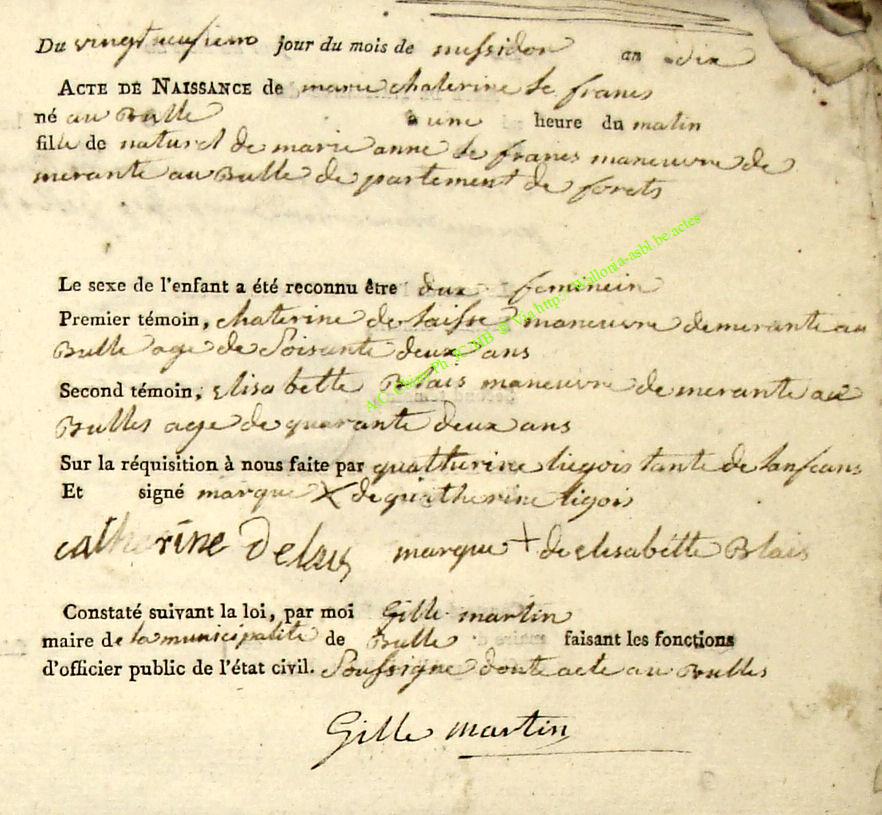 Du vingt neufiem jour du mois de messidor an dix
ACTE DE NAISSANCE de marie chaterine le frans
né au Bulle à une heure du matin
fille de naturel de marie anne le frans maneuvre de
merante au Bulle de partement de forets
Le sexe de l'enfant a été reconnu être dux feminein
Premier témoin, chaterine de laisse maneuvre demerante au
Bulle age de Soisante deux ans
Second témoin, Elisa bette Blais maneuvre de merante au
Bulles age de quarante deux ans
Sur la réquisition à nous faite par quatturine liegois tante de lanfans
Et signé marque X de quatherine ligois
catherine Delais marque + de elisabette Blais
Constaté suivant la loi, par moi Gille martin
maire de la municipalité de Bulle faisant les fonctions
d'officier public de l'état civil. Soussigne donte acte au Bulles
Gille martin